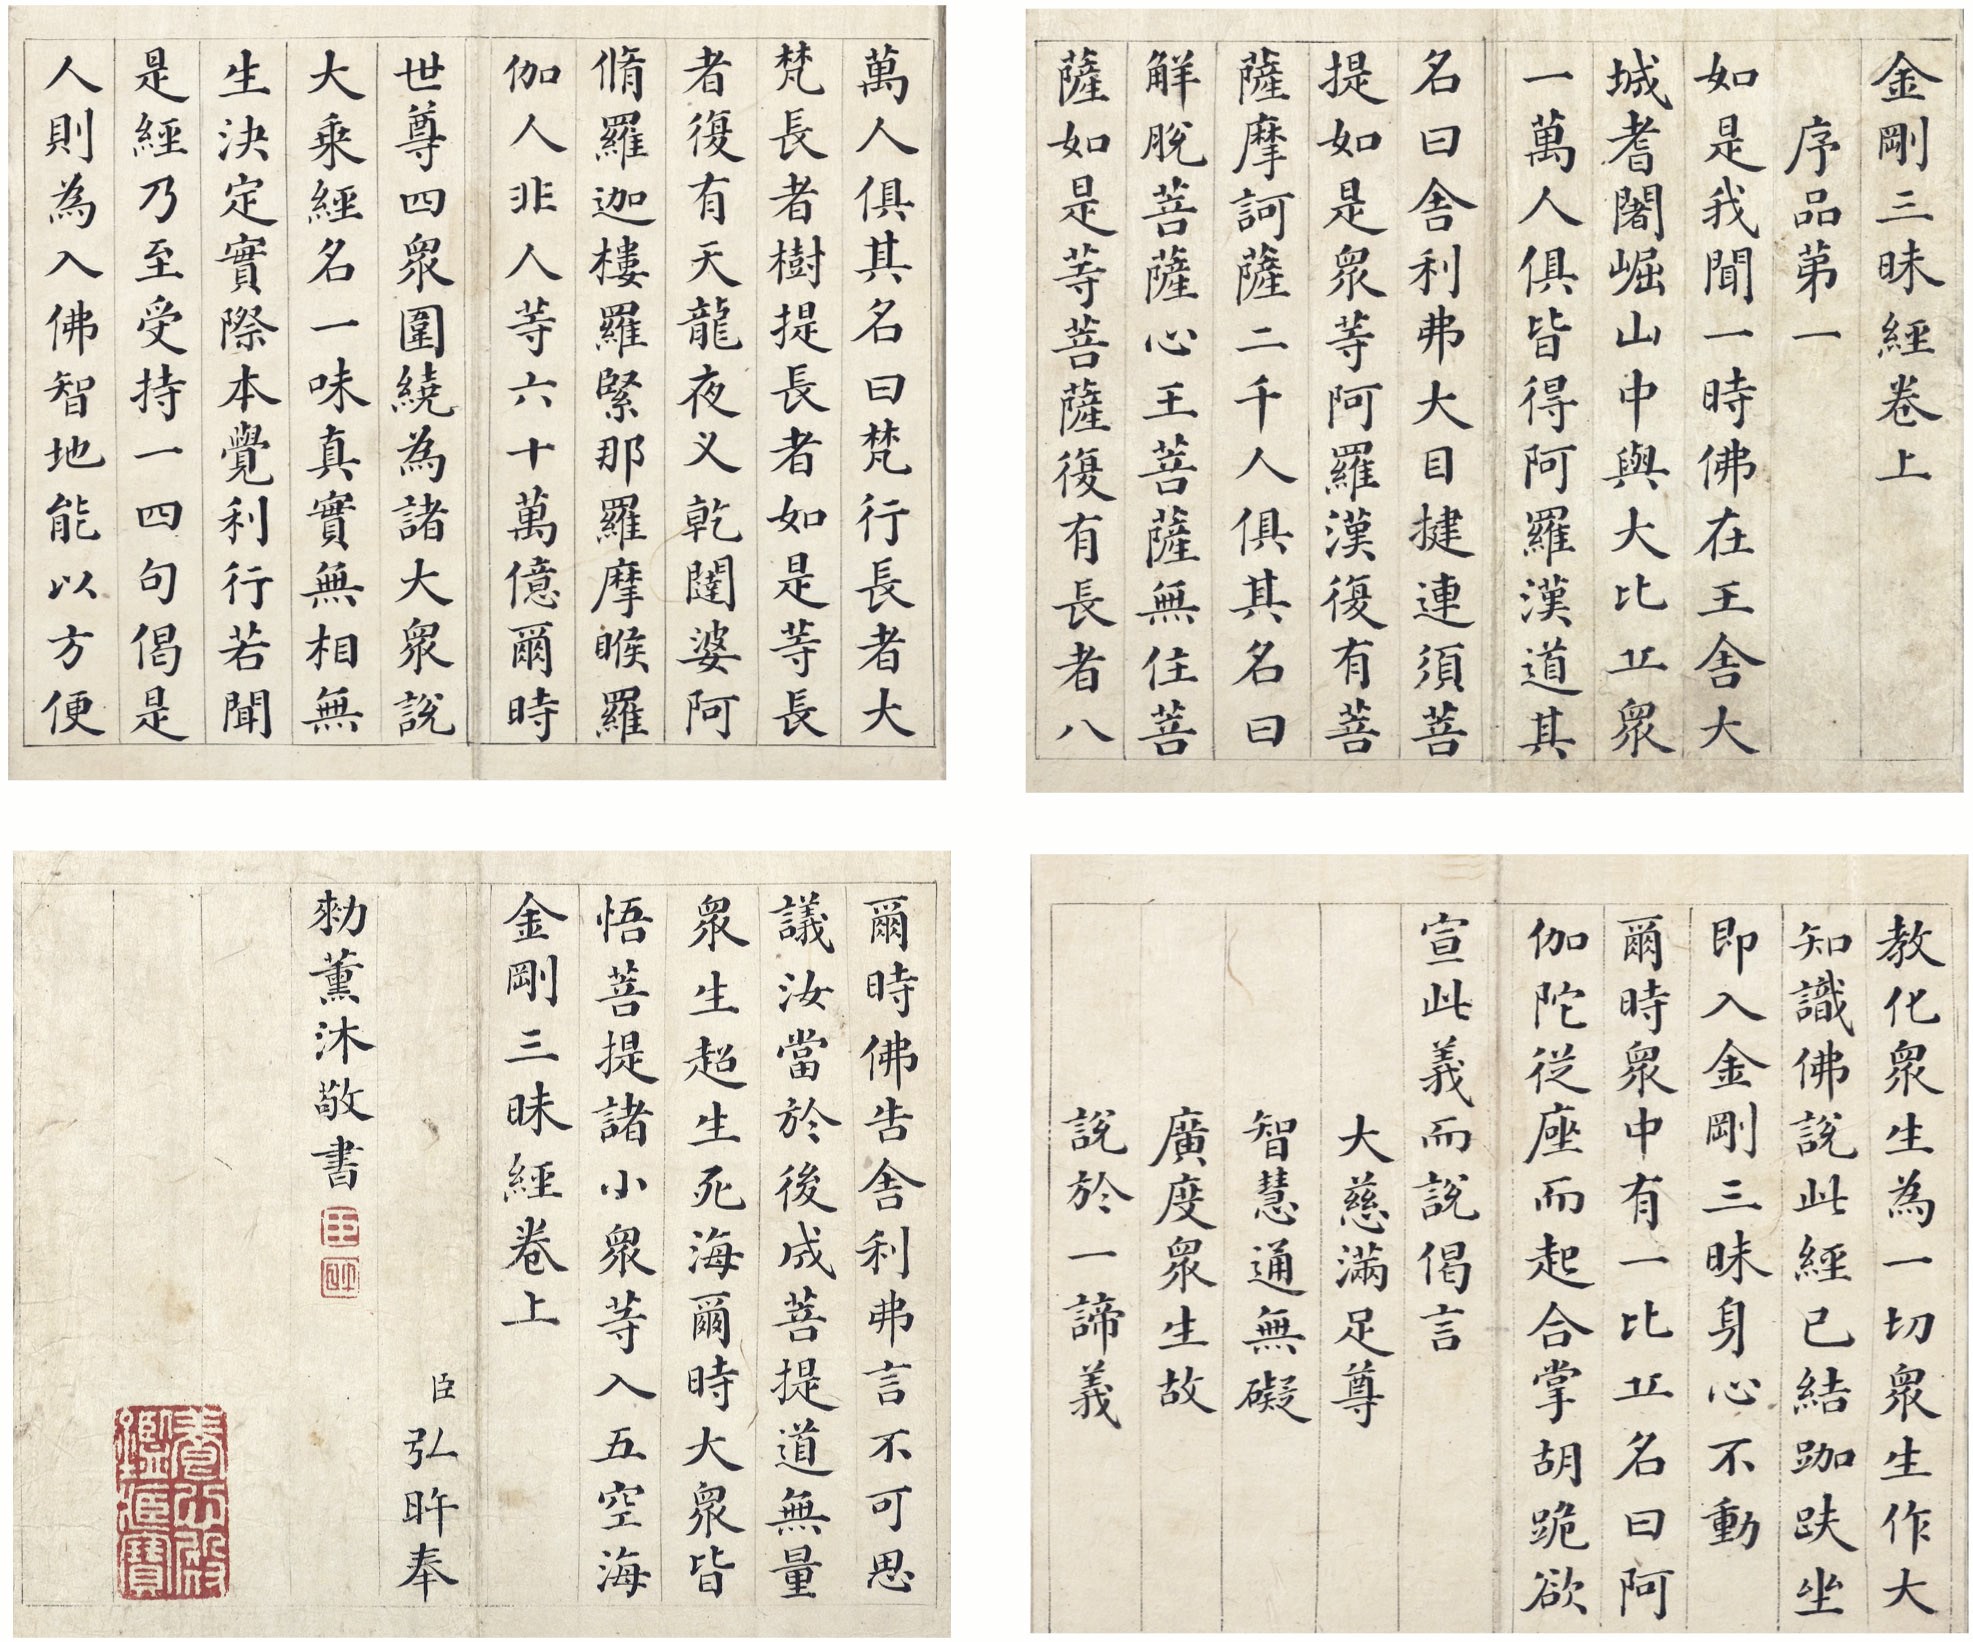 金剛三昧經卷上
序品第一
如是我聞一時佛在王舍大
城耆闍崛山中與大比丘眾
一萬人俱皆得阿羅漢道其
名曰舍利弗大目揵連須菩
提如是眾等阿羅漢復有菩
薩摩訶薩二千人俱其名曰
解脫菩薩心王菩薩無住菩
薩如是等菩薩復有長者八
萬人俱其名曰梵行長者大
梵長者樹提長者如是等長
者復有天龍夜叉乾闥婆阿
脩羅迦樓羅緊那羅摩睺羅
伽人非人等六十萬億爾時
世尊四眾圍繞為諸大眾說
大乘經名一味真實無相無
生決定實際本覺利行若聞
是經乃至受持一四句偈是
人則為入佛智地能以方便
教化眾生為一切眾生作大
知識佛說此經已結跏趺坐
即入金剛三昧身心不動
爾時眾中有一比丘名曰阿
伽陀從座而起合掌胡跪欲
宣此義而說偈言
大慈滿足尊
智慧通無礙
廣度眾生故
說於一諦義
爾時佛告舍利弗言不可思
議汝當於後成菩提道無量
眾生超生死海爾時大眾皆
悟菩提諸小眾等入五空海
金剛三昧經卷上
臣弘旿奉
勑薰沐敬書